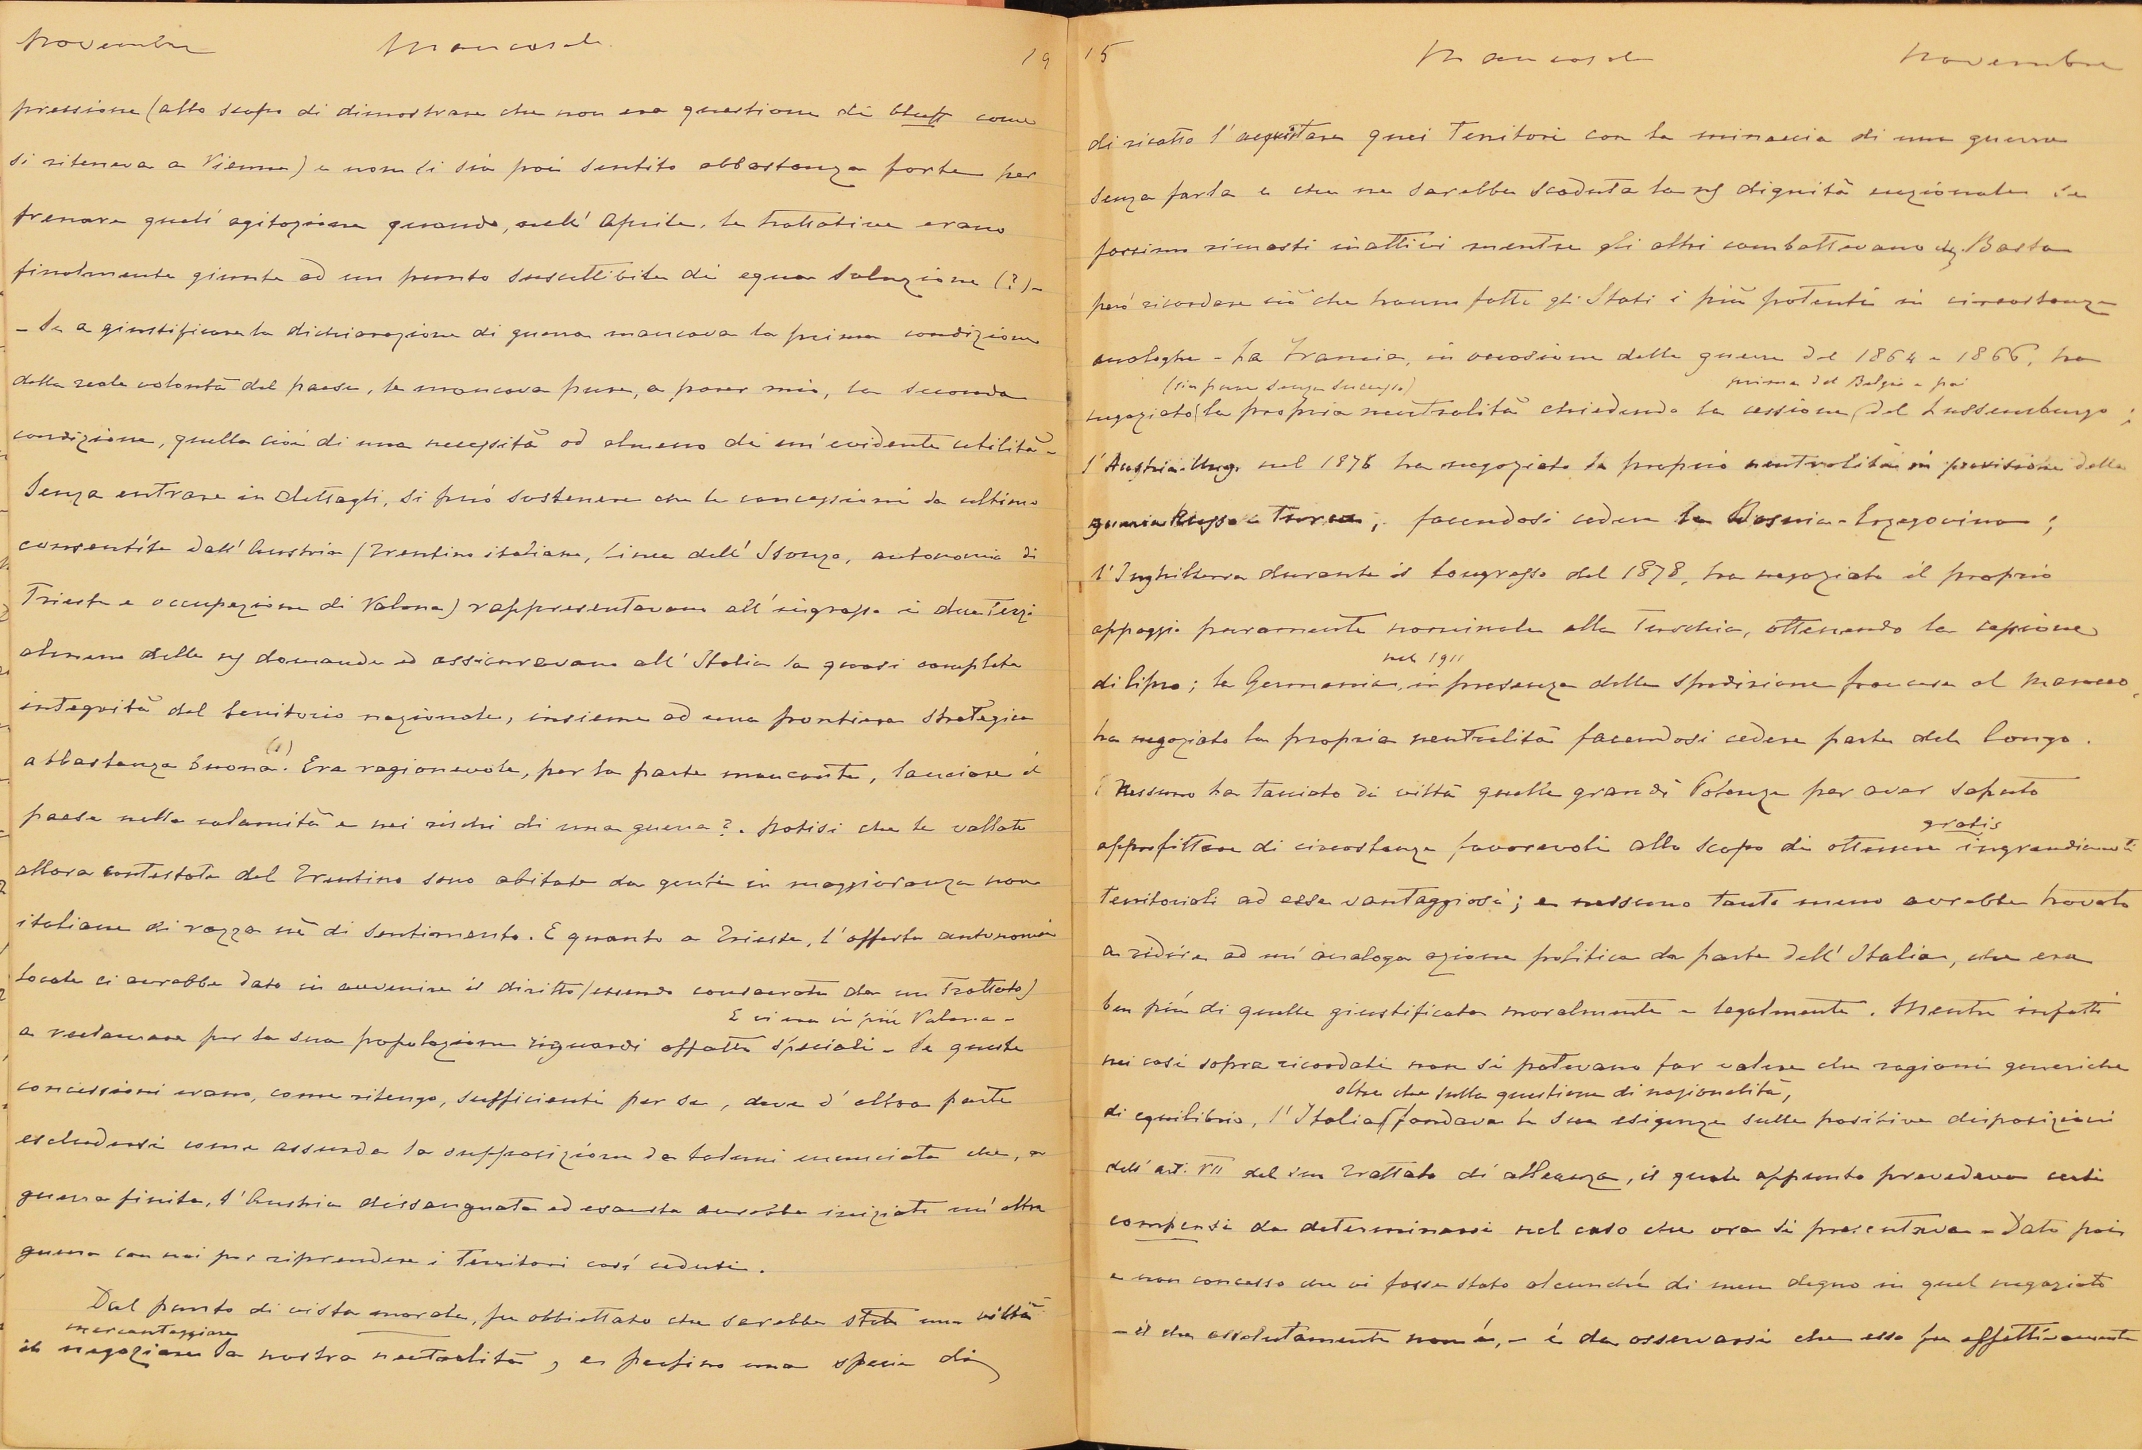 Novembre Mancasale 19
pressione (allo scopo di dimostrare che non era questione di bluff come
si riteneva a Vienna) e non si sia poi sentito abbastanza forte per
frenare quell'agitazione quando, nell'Aprile, le trattative erano
finalmente giunte ad un punto suscettibile di equa soluzione (?) -
- Se a giustificare la dichiarazione di guerra mancava la prima condizione
della reale volontà del paese, le mancava pure, a parer mio, la seconda
condizione, quella cioè di una necessità od almeno di un'evidente utilità -
Senza entrare in dettagli, si può sostenere che le concessioni da ultimo
consentite dall'Austria (Trentino italiano, linea dell'Isonzo, autonomia di
Trieste e occupazione di Valona) rappresentavano all'ingrosso i due terzi
almeno delle ns domande ed assicuravano all'Italia la quasi completa
integrità del territorio nazionale, insieme ad una frontiera strategica
abbastanza buona. (1) Era ragionevole, per la parte mancante, lanciare il
paese nelle calamità e nei rischi di una guerra?. Notisi che le vallate
allora contestate del Trentino sono abitate da gente in maggioranza non
italiana di razza nè di sentimento. E quanto a Trieste, l'offerta autonomia
locale ci avrebbe dato in avvenire il diritto (essendo consacrata da un Trattato)
E vi era in più Valona -
a reclamare per la sua popolazione riguardi affatto speciali - Se queste
concessioni erano, come ritengo, sufficienti per se, deve d'altra parte
escludersi come assurda la supposizione da taluni enunciata che, a
guerra finita, l'Austria dissanguata ed esausta avrebbe iniziato un'altra
guerra con noi per riprendere i territori così ceduti.
Dal punto di vista morale, fu obbiettato che sarebbe stata una viltà
mercanteggiare
il negoziare la nostra neutralità, e perfino una specie di
15 Mancasale Novembre
di ricatto l'acquistare quei Territori con la minaccia di una guerra
senza farla e che ne sarebbe scaduta la ns dignità nazionale se
fossimo rimasti inattivi mentre gli altri combattevano. Basta
però ricordare ciò che hanno fatto gli Stati i più potenti in circostanze
analoghe - La Francia, in occasione delle guerre del 1864 e 1866, ha
(sia pure senza successo) prima del Belgio e poi
negoziato la propria neutralità chiedendo la cessione del Lussemburgo;
l'Austria-Ung. nel 1878 ha negoziato la propria neutralità in previsione della
guerra Russo-Turca, facendosi cedere la Bosnia-Erzegovina;
l'Inghilterra durante il Congresso del 1878, ha negoziato il proprio
appoggio puramente nominale alla Turchia, ottenendo la cessione
nel 1911
di Cipro; la Germania, in presenza della spedizione francese al Marocco,
ha negoziato la propria neutralità facendosi cedere parte del Congo.
Nessuno ha tacciato di viltà quelle grandi Potenze per aver saputo
gratis
approfittare di circostanze favorevoli allo scopo di ottenere ingrandimenti
territoriali ad esse vantaggiosi; e nessuno tanto meno avrebbe trovato
a ridire ad un'analoga azione politica da parte dell'Italia, che era
ben più di quelle giustificata moralmente e legalmente. Mentre infatti
nei casi sopra ricordati non si potevano far valere che ragioni generiche
oltre che sulla questione di nazionalità,
di equilibrio, l'Italia fondava le sue esigenze sulle positive disposizioni
dell'art. VII del suo Trattato di alleanza, il quale appunto prevedeva certi
compensi da determinarsi nel caso che ora si presentava - Dato poi
e non concesso che vi fosse stato alcunchè di meno degno in quel negoziato
- il che assolutamente non è, - è da osservarsi che esso fu effettivamente